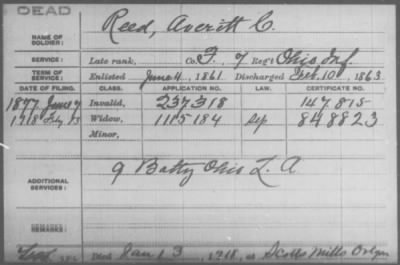 DEAD
NAME OF SOLDIER: Reed, Averitt C.
SERVICE: Late rank, Co. F, 7 Reg't Ohio Inf.
TERM OF SERVICE: Enlisted June 4, 1861. Discharged Feb. 10, 1863.
DATE OF FILING. CLASS. APPLICATION NO. LAW. CERTIFICATE NO.
1877 June 7 Invalid, 237318 147.815
1918 Feby Widow, 1115184 Sep 848823
Minor,
ADDITIONAL SERVICES: 9 Batty Ohio L. A.
REMARKS:
Died Jan 13, 1918, at Scotts Mills Oregon